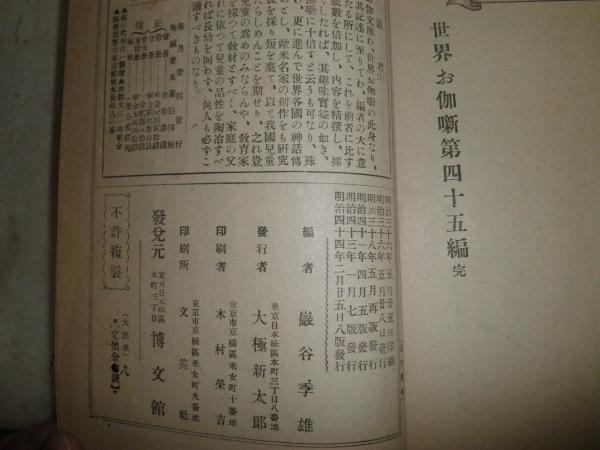 世界お伽噺第四十五編 完
伽文庫わ、世界お伽噺の此身なり、
其記述に至りてわ、編者の大に意
たる所にして、これを前者に比す
紙數を倍加し、内容を精撰し、挿
したれば、其趣味實益の如き、
伽噺に十倍すと云うも可なり、殊
更に進んで世界各國の神話傳
とし、歐米名家の創作をも研究
長を採り短を棄て、以て我國兒童
たらしめんことを期せり、之れ豈
兒童の爲めのみならんや、敎育家
を採つて敎材とすべく、家庭の父
れに依つて兒童の品性を陶冶すべ
れば長幼を問わず、何人も必ずこ
讀すべきものなり。
明治三十六年五月廿五日印刷
明治三十六年五月廿八日發行
明治三十八年五月再版發行
明治四十一年四月五版發行
明治四十三年一月七版發行
明治四十四年二月廿五日八版發行
編者 巖谷季雄
東京日本橋區本町三丁目八番地
發行者 大極新太郎
東京市京橋區釆女町十番地
印刷者 木村榮吉
東京市京橋區釆女町九番地
印刷所 文英社
東京日本橋區
本町三丁目
發兌元 博文館
不許複製